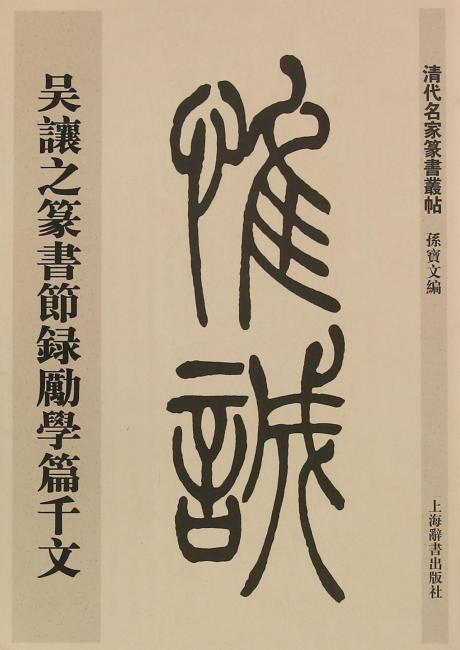 清代名家篆書叢帖
孫寶文編
上海辭書出版社
惟誠
吴讓之篆書節録勵學篇千文